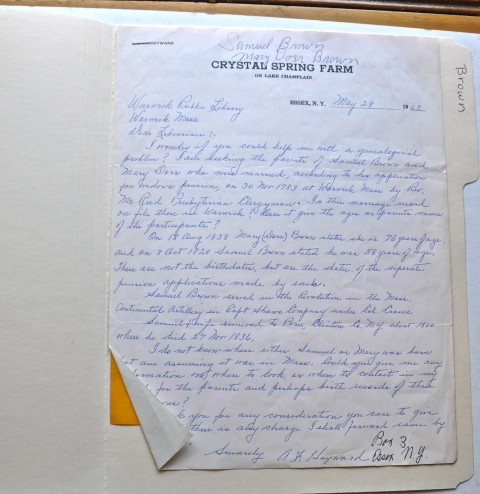 Brown
HAYWARD
Samuel Brown
Mary Dorr Brown
CRYSTAL SPRING FARM
ON LAKE CHAMPLAIN
ESSEX, N. Y. May 29 1962
Warwick Public Library
Warwick Mass
Dear Librarian:
I wonder if you could help me with a genealogical
problem? I am seeking the parents of Samuel Brown and
Mary Dorr who were married, according to her application
for widows pension, on 30 Nov 1783 at Warwick Mass by Rev.
Mr. Reed Presbyterian Clergyman. Is the marriage record
on file there in Warwick? Does it give the ages or parents names
of the participants?
On 18 Aug 1838 Mary (Dorr) Brown states she is 76 years of age
and on 3 Oct 1820 Samuel Brown stated he was 58 years of age.
These are not the birthdates, but are the dates of the separate
pension applications made by each.
Samuel Brown served in the Revolution in the Mass.
Continental Artillery in Capt Shaws Company under Col. Crane
Samuel & wife removed to Peru, Clinton Co. N.Y. about 1800
where he died 27 Nov 1836.
I do not know where either Samuel or Mary was born
but am assuming it was in Mass. Could you give me any
information on where to look, or whom to contact in my
for the parents and perhaps birth records of these
you for any consideration you care to give
there is any charge I shall forward same by
Sincerely A. L. Hayward
Box 3
Essex N.Y.